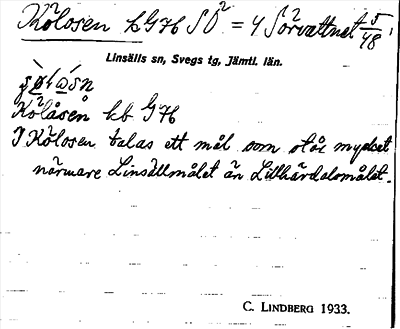 Kölosen kb G 76 SO² = 4 Sörvattnet 5/48
Linsälls sn, Svegs tg, Jämtl. län.
Kölåsen kb G 76
I Kölosen talas ett mål som står mycket
närmare Linsällmålet än Lillhärdalsmålet.
C. LINDBERG 1933.